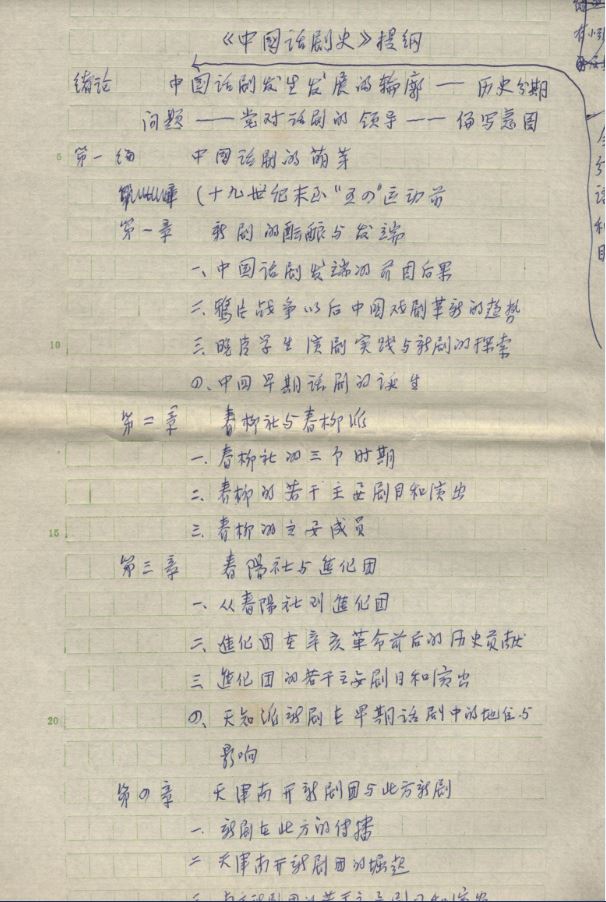 《中国话剧史》提纲
绪论　中国话剧发生发展的轮廓——历史分期
问题——党对话剧的领导——编写意图
5 第一编　中国话剧的萌芽
(十九世纪末至"五四"运动前
第一章　新剧的酝酿与发端
一、中国话剧发端的前因后果
二、鸦片战争以后中国戏剧革新的趋势
10 三、晚清学生演剧实践与新剧的探索
四、中国早期话剧的诞生
第二章　春柳社与春柳派
一、春柳社的三个时期
二、春柳的若干主要剧目和演出
15 三、春柳的主要成员
第三章　春陽社与進化团
一、从春陽社到進化团
二、進化团在辛亥革命前后的历史贡献
三、進化团的若干主要剧目和演出
20 四、天知派新剧在早期话剧中的地位与
影响
第四章　天津南开新剧团与北方新剧
一、新剧在北方的传播
二、天津南开新剧团的崛起
三、南开新剧团的若干主要剧目和演出